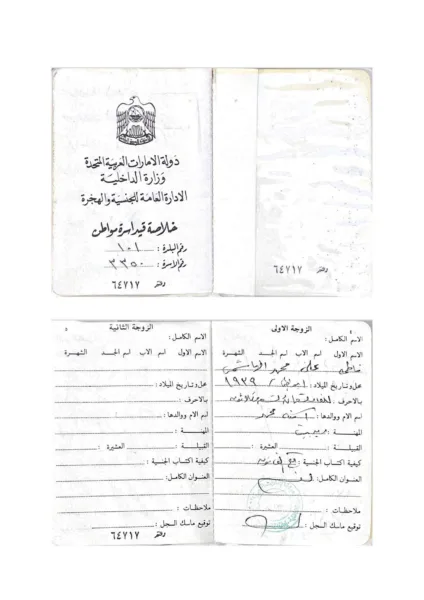 دولة الامارات العربية المتحدة
وزارة الداخلية
الادارة العامة للجنسية والهجرة
خلاصة قيد اسرة مواطن
رقم البلدة : ١٠١
رقم الاسرة : ٣٣٥٠
٦٤٧١٧
الزوجة الاولى
الاسم الكامل :
الاسم الاول اسم الاب اسم الجد الشهرة
علي محمد الهاشمي
محل وتاريخ الميلاد : ابوظبي / ١٩٣٩
بالاحرف :
اسم الام ووالدها : آمنة محمد
المهنة :
القبيلة : العشيرة :
كيفية اكتساب الجنسية :
العنوان الكامل :
ملاحظات :
توقيع ماسك السجل :
الزوجة الثانية
الاسم الكامل :
الاسم الاول اسم الاب اسم الجد الشهرة
محل وتاريخ الميلاد :
بالاحرف :
اسم الام ووالدها :
المهنة :
القبيلة : العشيرة :
كيفية اكتساب الجنسية :
العنوان الكامل :
ملاحظات :
توقيع ماسك السجل :
٦٤٧١٧